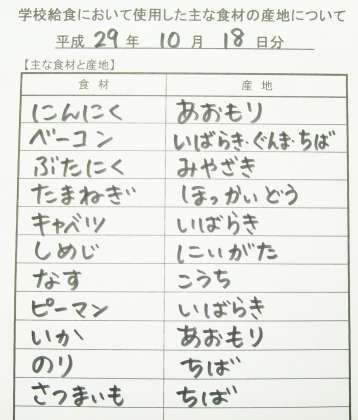 学校給食において使用した主な食材の産地について
平成 29 年 10 月 18 日分
【主な食材と産地】
食材 産地
にんにく あおもり
ベーコン いばらき・ぐんま・ちば
ぶたにく みやざき
たまねぎ ほっかいどう
キャベツ いばらき
しめじ にいがた
なす こうち
ピーマン いばらき
いか あおもり
のり ちば
さつまいも ちば